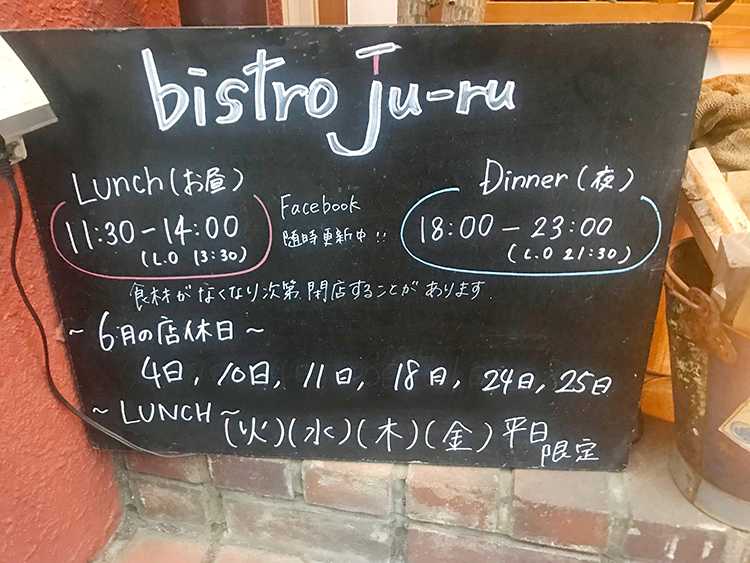 bistro ju-ru
Lunch(お昼)
11:30-14:00
(L.O 13:30)
Facebook
随時更新中!!
Dinner(夜)
18:00-23:00
(L.O 21:30)
食材がなくなり次第、閉店することがあります
~6月の店休日~
4日, 10日, 11日, 18日, 24日, 25日
~LUNCH~
(火)(水)(木)(金)平日
限定